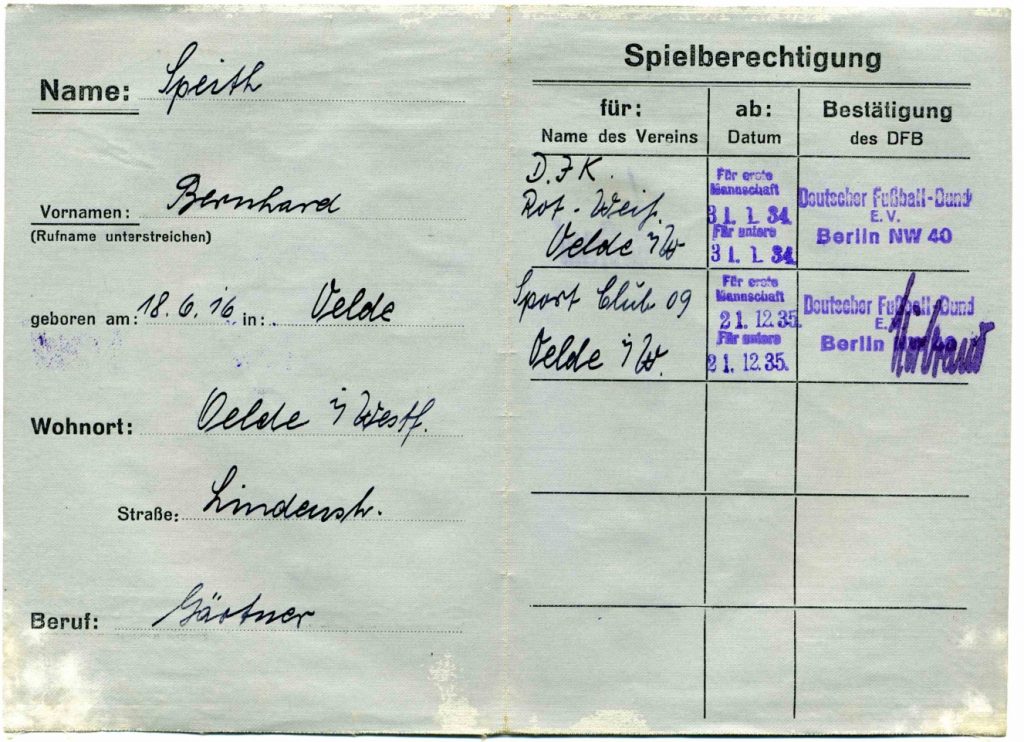 Name: Speith
Vornamen: Bernhard
(Rufname unterstreichen)
geboren am: 18.6.16 in: Oelde
Wohnort: Oelde i/Westf.
Straße: Lindenstr.
Beruf: Gärtner
Spielberechtigung
für: ab: Bestätigung
Name des Vereins Datum des DFB
D.J.K.
Rot-Weiß.
Oelde i/W
Für erste
Mannschaft
31. 1. 34.
Für untere
31. 1. 34.
Deutscher Fußball-Bund
E.V.
Berlin NW 40
Sport Club 09
Oelde i/W.
Für erste
Mannschaft
21. 12. 35.
Für untere
21. 12. 35.
Deutscher Fußball-Bund
E.
Berlin NW 40